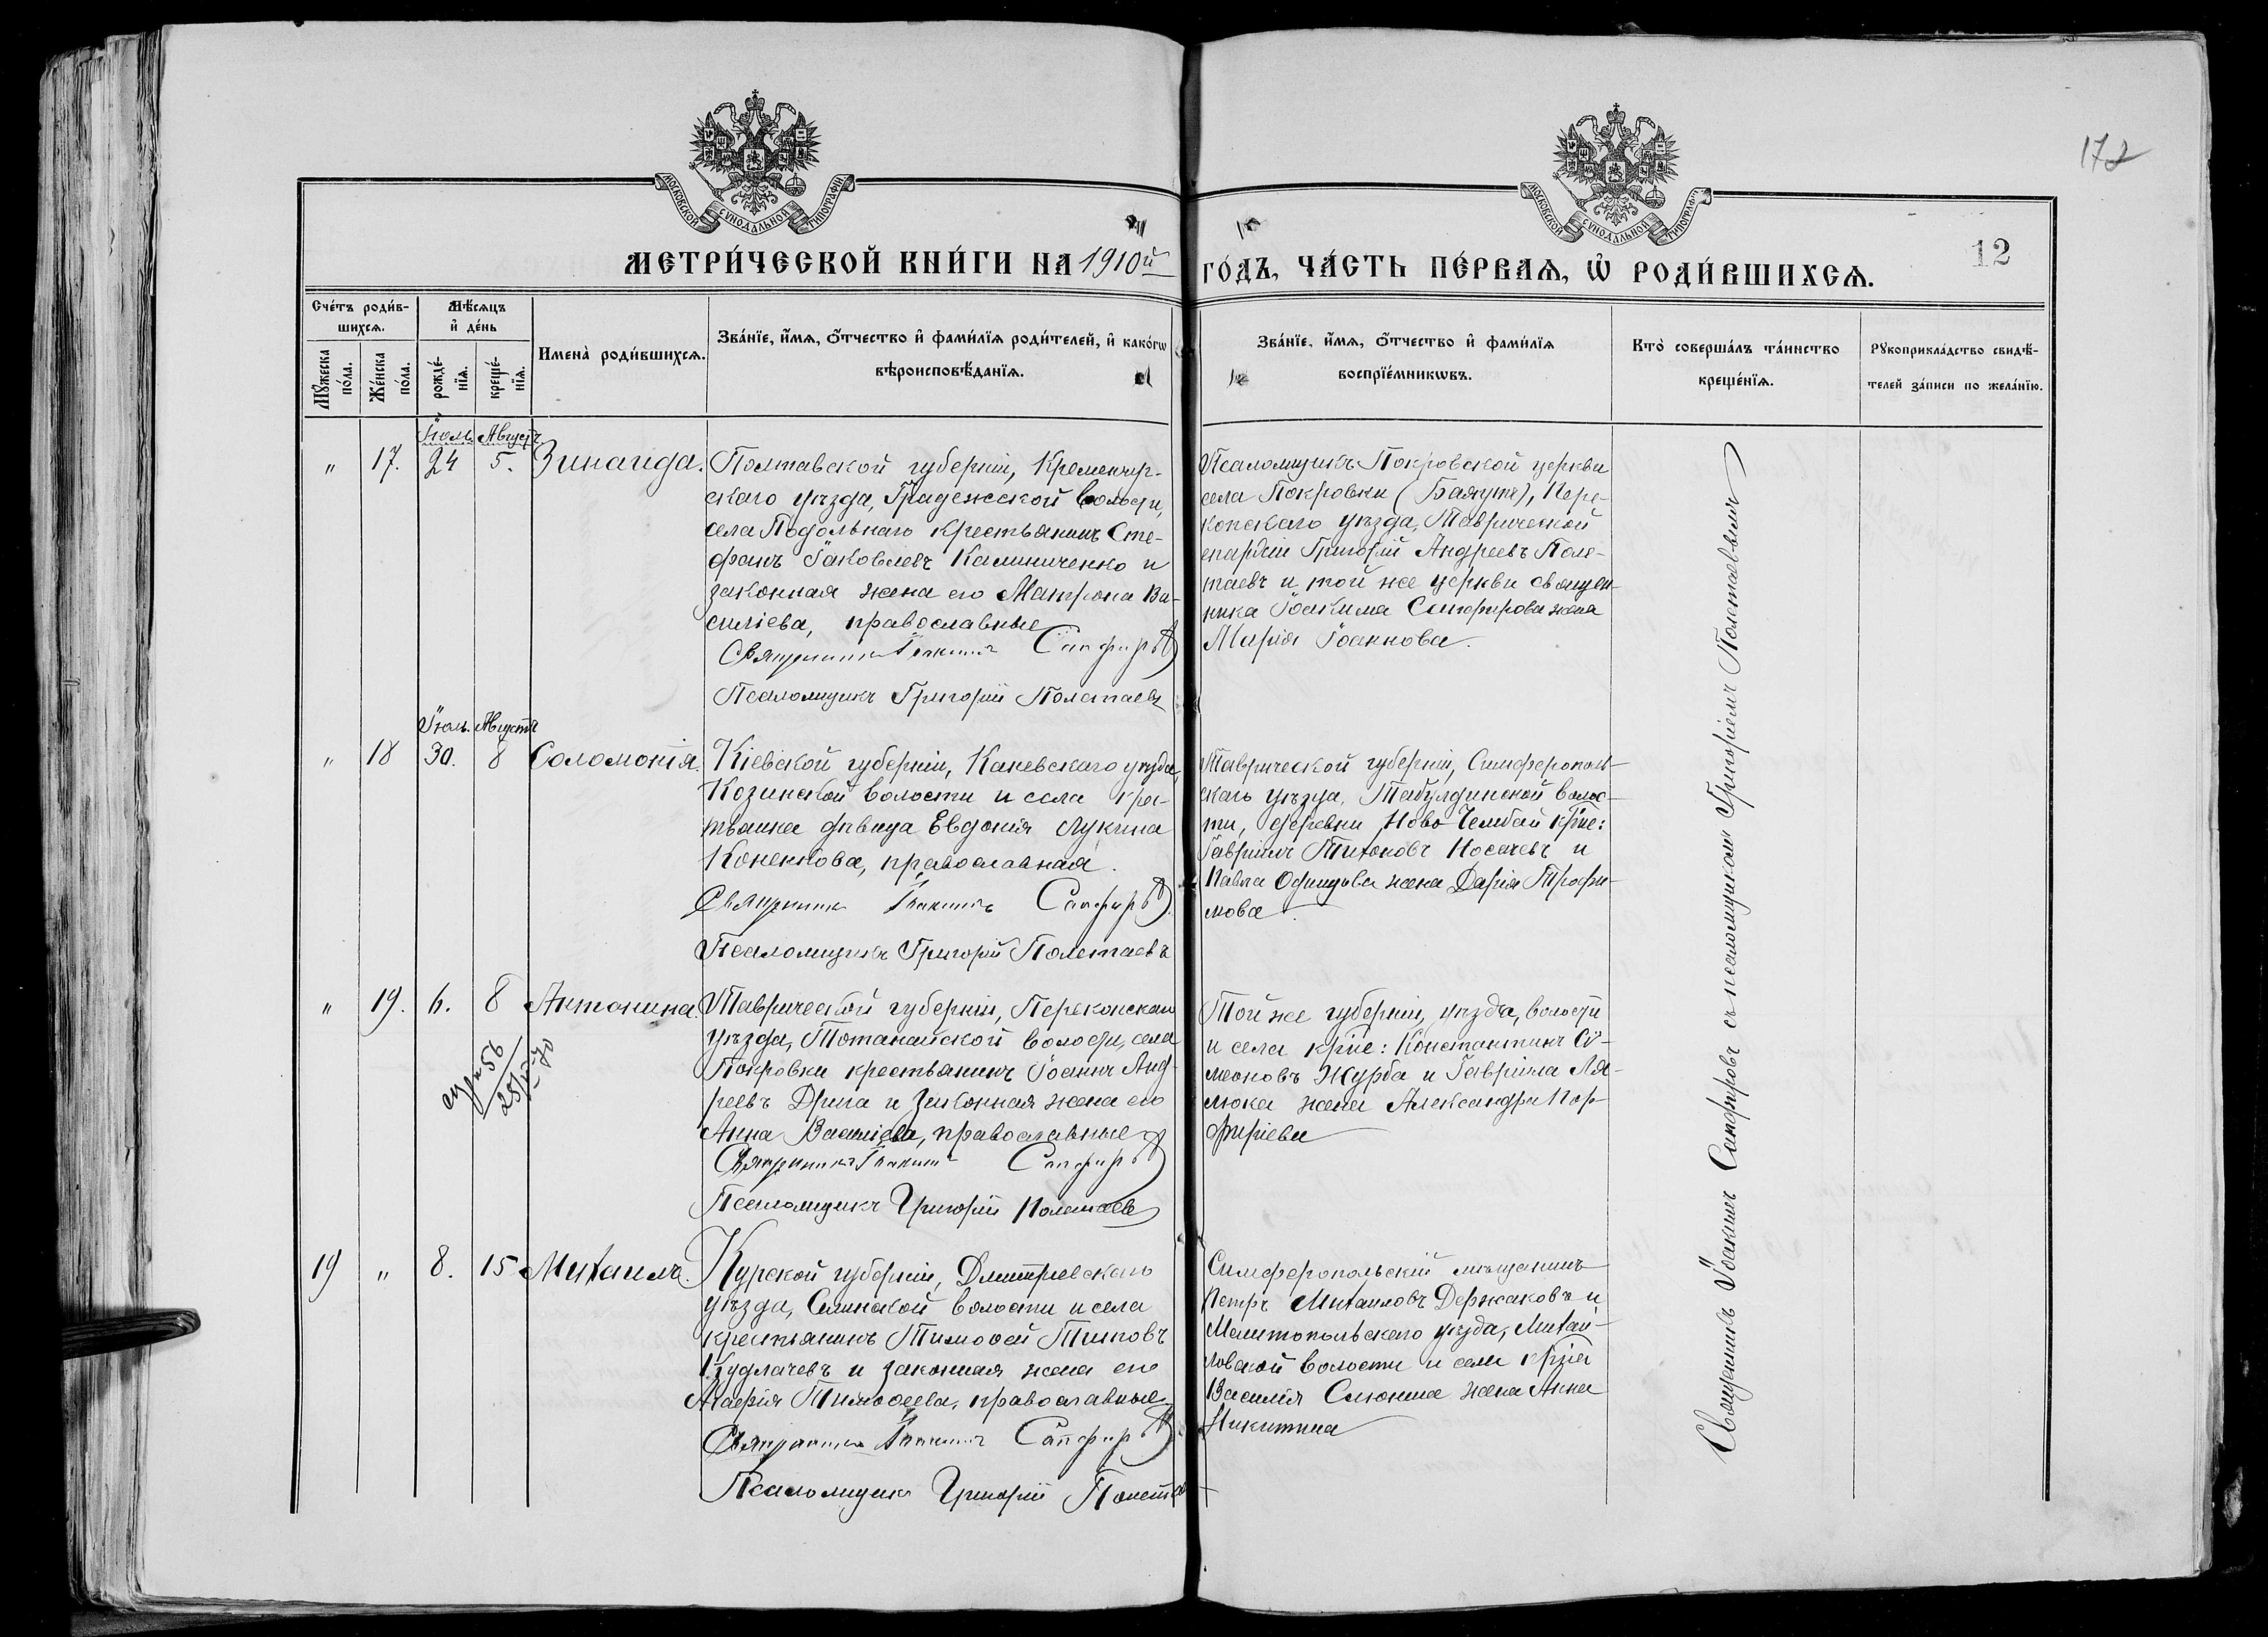 172
МОСКОВСКОЙ СѴНОДАЛЬНОЙ ТИПОГРАФІИ
МОСКОВСКОЙ СѴНОДАЛЬНОЙ ТИПОГРАФІИ
МЕТРИ́ЧЕСКОЙ КНИ́ГИ НА 1910й ГО́ДЪ, ЧА́СТЬ ПЕ́РВАѦ, Ѽ РОДИ́ВШИХСѦ.
12
Сче́тъ роди́в-
шихсѧ.
Мꙋ́жеска по́ла.
Же́нска по́ла.
Мѣ́сѧцъ и҆ де́нь
рожде́-нїѧ.
креще́-нїѧ.
Имена̀ роди́вшихсѧ.
Зва́нїе, и҆́мѧ, о҆́тчество и҆ фами́лїѧ роди́телей, и҆ како́гѡ
вѣроисповѣ́данїѧ.
Зва́нїе, и҆́мѧ, о҆́тчество и҆ фами́лїѧ
воспрїе́мникѡвъ.
Кто̀ соверша́лъ та́инство
креще́нїѧ.
Рꙋкоприкла́дство свидѣ́-
телей за́писи по жела́нїю.
Іюль Августъ
" 17. 24 5. Зинаида.
Полтавской губерніи, Кременчуг-
скаго уѣзда, Градежской волости,
села Подольнаго крестьянинъ Сте-
фанъ Іаковлевъ Калиниченко и
законная жена его Матрона Ва-
силіева, православные
Священникъ Іоакимъ Сапфировъ
Псаломщикъ Григорій Полетаевъ
Псаломщикъ Покровской церкви
села Покровки (Баяуте), Пере-
копскаго уѣзда, Таврической
епархіи Григорій Андреевъ Поле-
таевъ и той же церкви священ-
ника Іоакима Сапфирова жена
Марія Іоаннова.
Іюль. Августъ
" 18 30. 8 Соломонія.
Кіевской губерніи, Каневскаго уѣзда,
Козинской волости и села кре-
стьянка дѣвица Евдокія Лукина
Коненкова, православная.
Священникъ Іоакимъ Сапфировъ.
Псаломщикъ Григорій Полетаевъ
Таврической губерніи, Симферополь-
скаго уѣзда, Табулдинской волос-
ти, деревни Ново-Чембай крие:
Гавріилъ Тихоновъ Носачевъ и
Павла жена Дарія Трофи-
мова.
" 19. 6. 8 Антонина.
Таврической губерніи, Перекопскаго
уѣзда, Тотанайской волости, села
Покровки крестьянинъ Іоаннъ Анд-
реевъ Дрига и законная жена его
Анна Василіева, православные
Священникъ Іоакимъ Сапфировъ
Псаломщикъ Григорій Полетаевъ
Той же губерніи, уѣзда, волости
и села крие: Константинъ Сѵ-
меоновъ Журба и Гавріила Ля-
люка жена Александра Пор-
фиріева
19 " 8. 15 Михаилъ.
Курской губерніи, Дмитріевскаго
уѣзда, Селинской волости и села
крестьянинъ Тимоѳей Титовъ
Кудлачевъ и законная жена его
Марія Тимоѳеева, православные.
Священникъ Іоакимъ Сапфировъ.
Псаломщикъ Григорій Полетаевъ
Симферопольскій мѣщанинъ
Петръ Михаиловъ Держаковъ и
Мелитопольскаго уѣзда, Михай-
ловской волости и села
Василія жена Анна
Никитина
Священникъ Іоакимъ Сапфировъ съ псаломщикомъ Григоріемъ Полетаевымъ